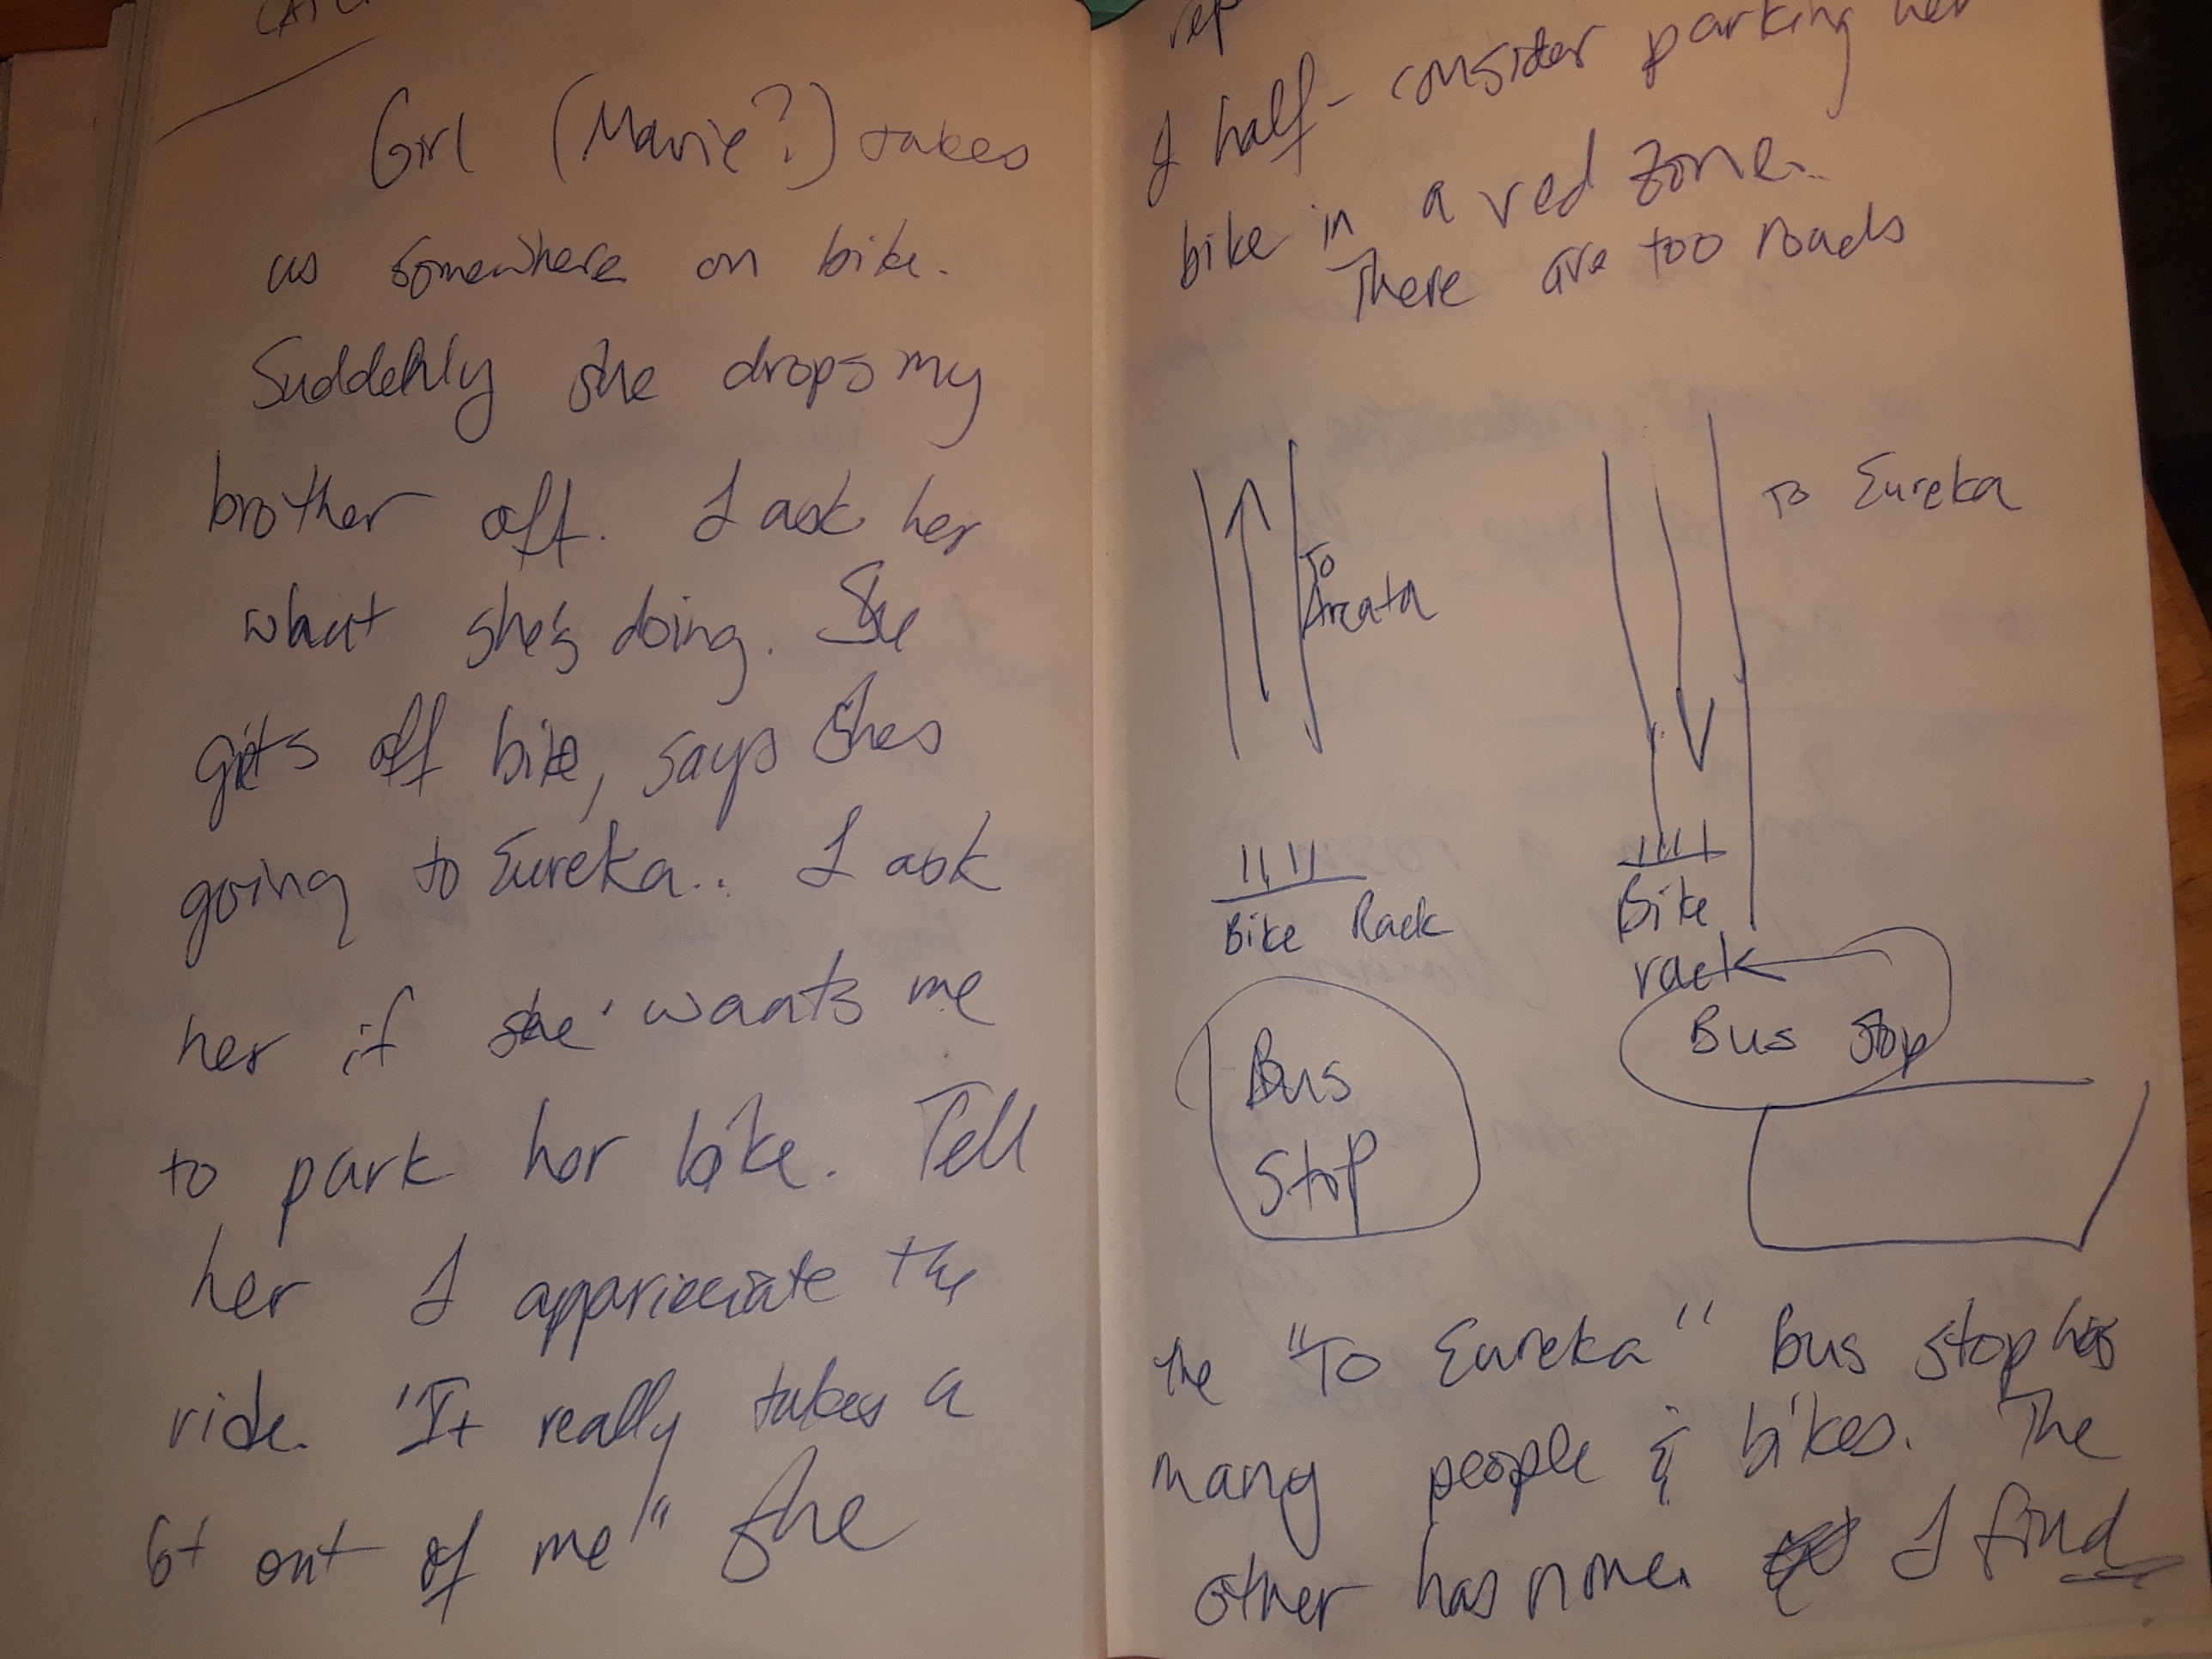 Girl (Marie?) takes
us somewhere on bike.
Suddenly she drops my
brother off. I ask her
what she's doing. She
gets off bike, says shes
going to Eureka.. I ask
her if she wants me
to park her bike. Tell
her I apprieciate the
ride. "It really takes a
lot out of me" She
rep
I half-consider parking her
bike in a red zone.
There are too roads
To Eureka
To
Arcata
Bike Rack
Bike
rack
Bus
Stop
Bus Stop
the "To Eureka" Bus stop has
many people & bikes. The
other has none. I find